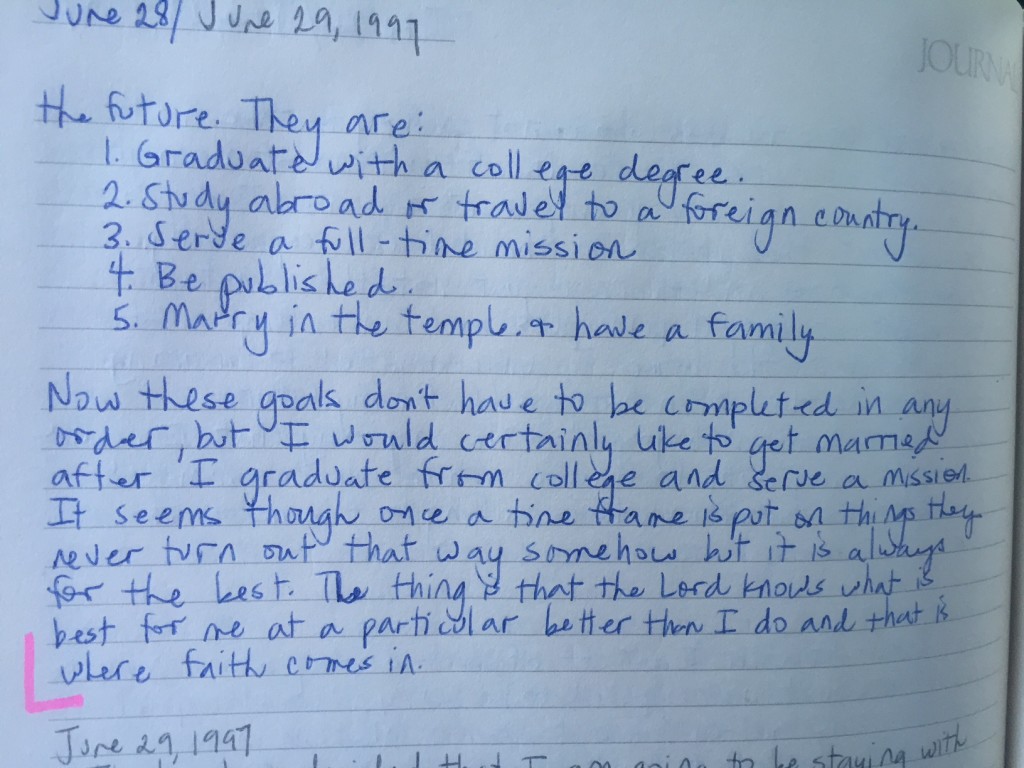 June 28/ June 29, 1997
JOURNA
the future. They are:
1. Graduate with a college degree.
2. Study abroad or travel to a foreign country.
3. Serve a full-time mission
4. Be published.
5. Marry in the temple. & have a family
Now these goals don't have to be completed in any
order, but I would certainly like to get married
after I graduate from college and serve a mission.
It seems though once a time frame is put on things they
never turn out that way somehow but it is always
for the best. The thing is that the Lord knows what is
best for me at a particular better than I do and that is
where faith comes in.
June 29, 1997
that I am going to be staying with